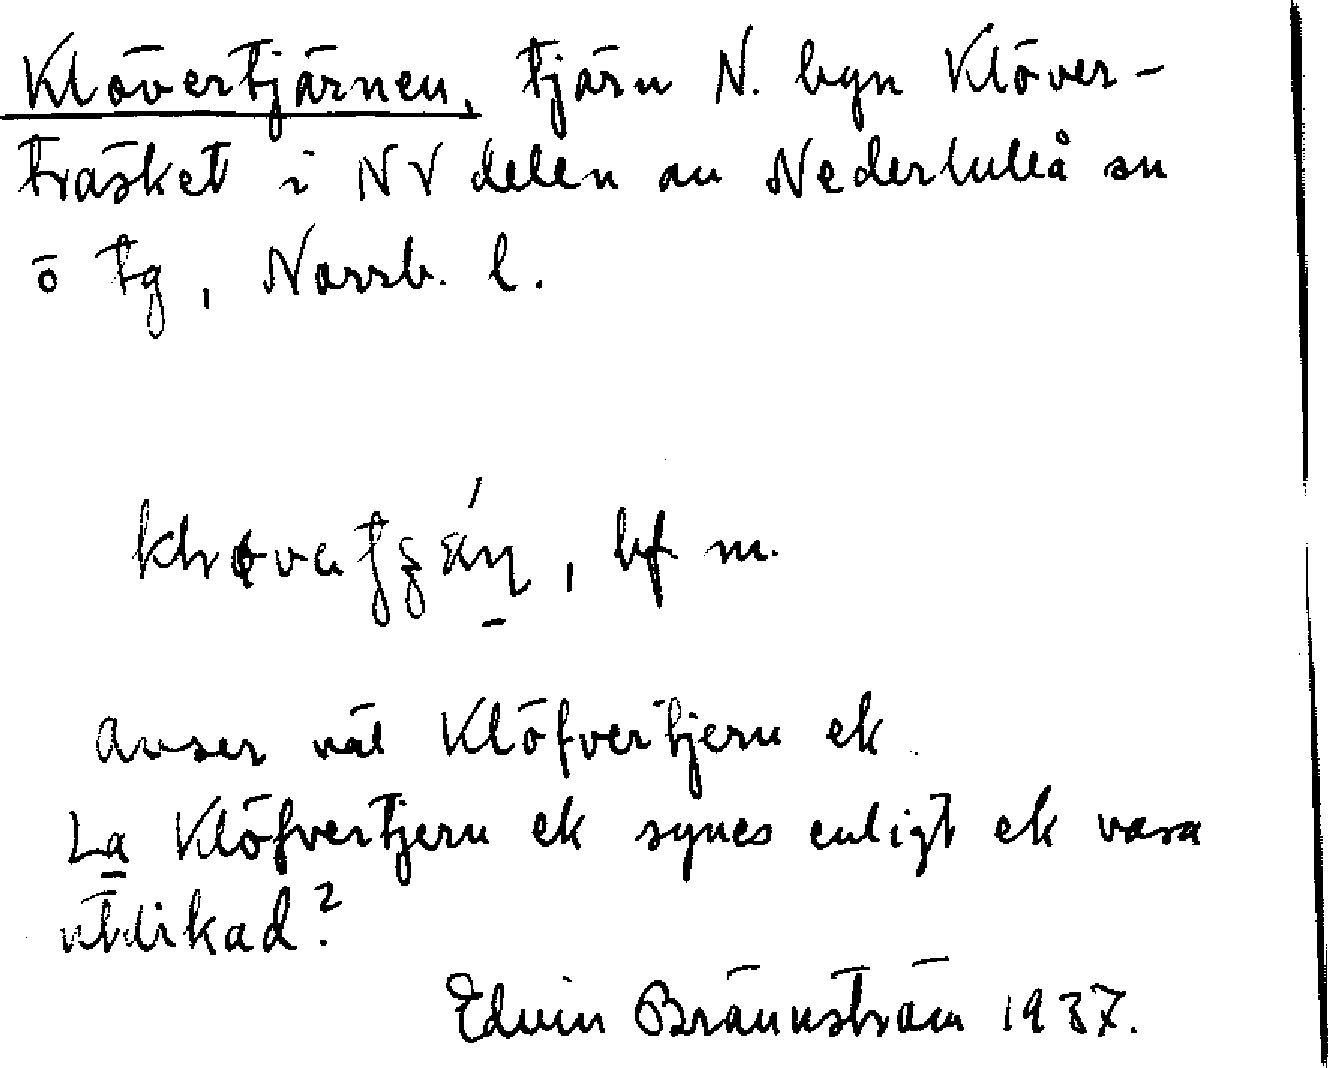 Klövertjärnen, tjärn N. byn Klöver-
träsket i NV delen av Nederluleå sn
ö tg, Norrb. l.
, bf m.
Avser väl Klöfvertjern ek.
La Klöfvertjern ek synes enligt ek vara
utdikad?
Edvin Brännström 1937.